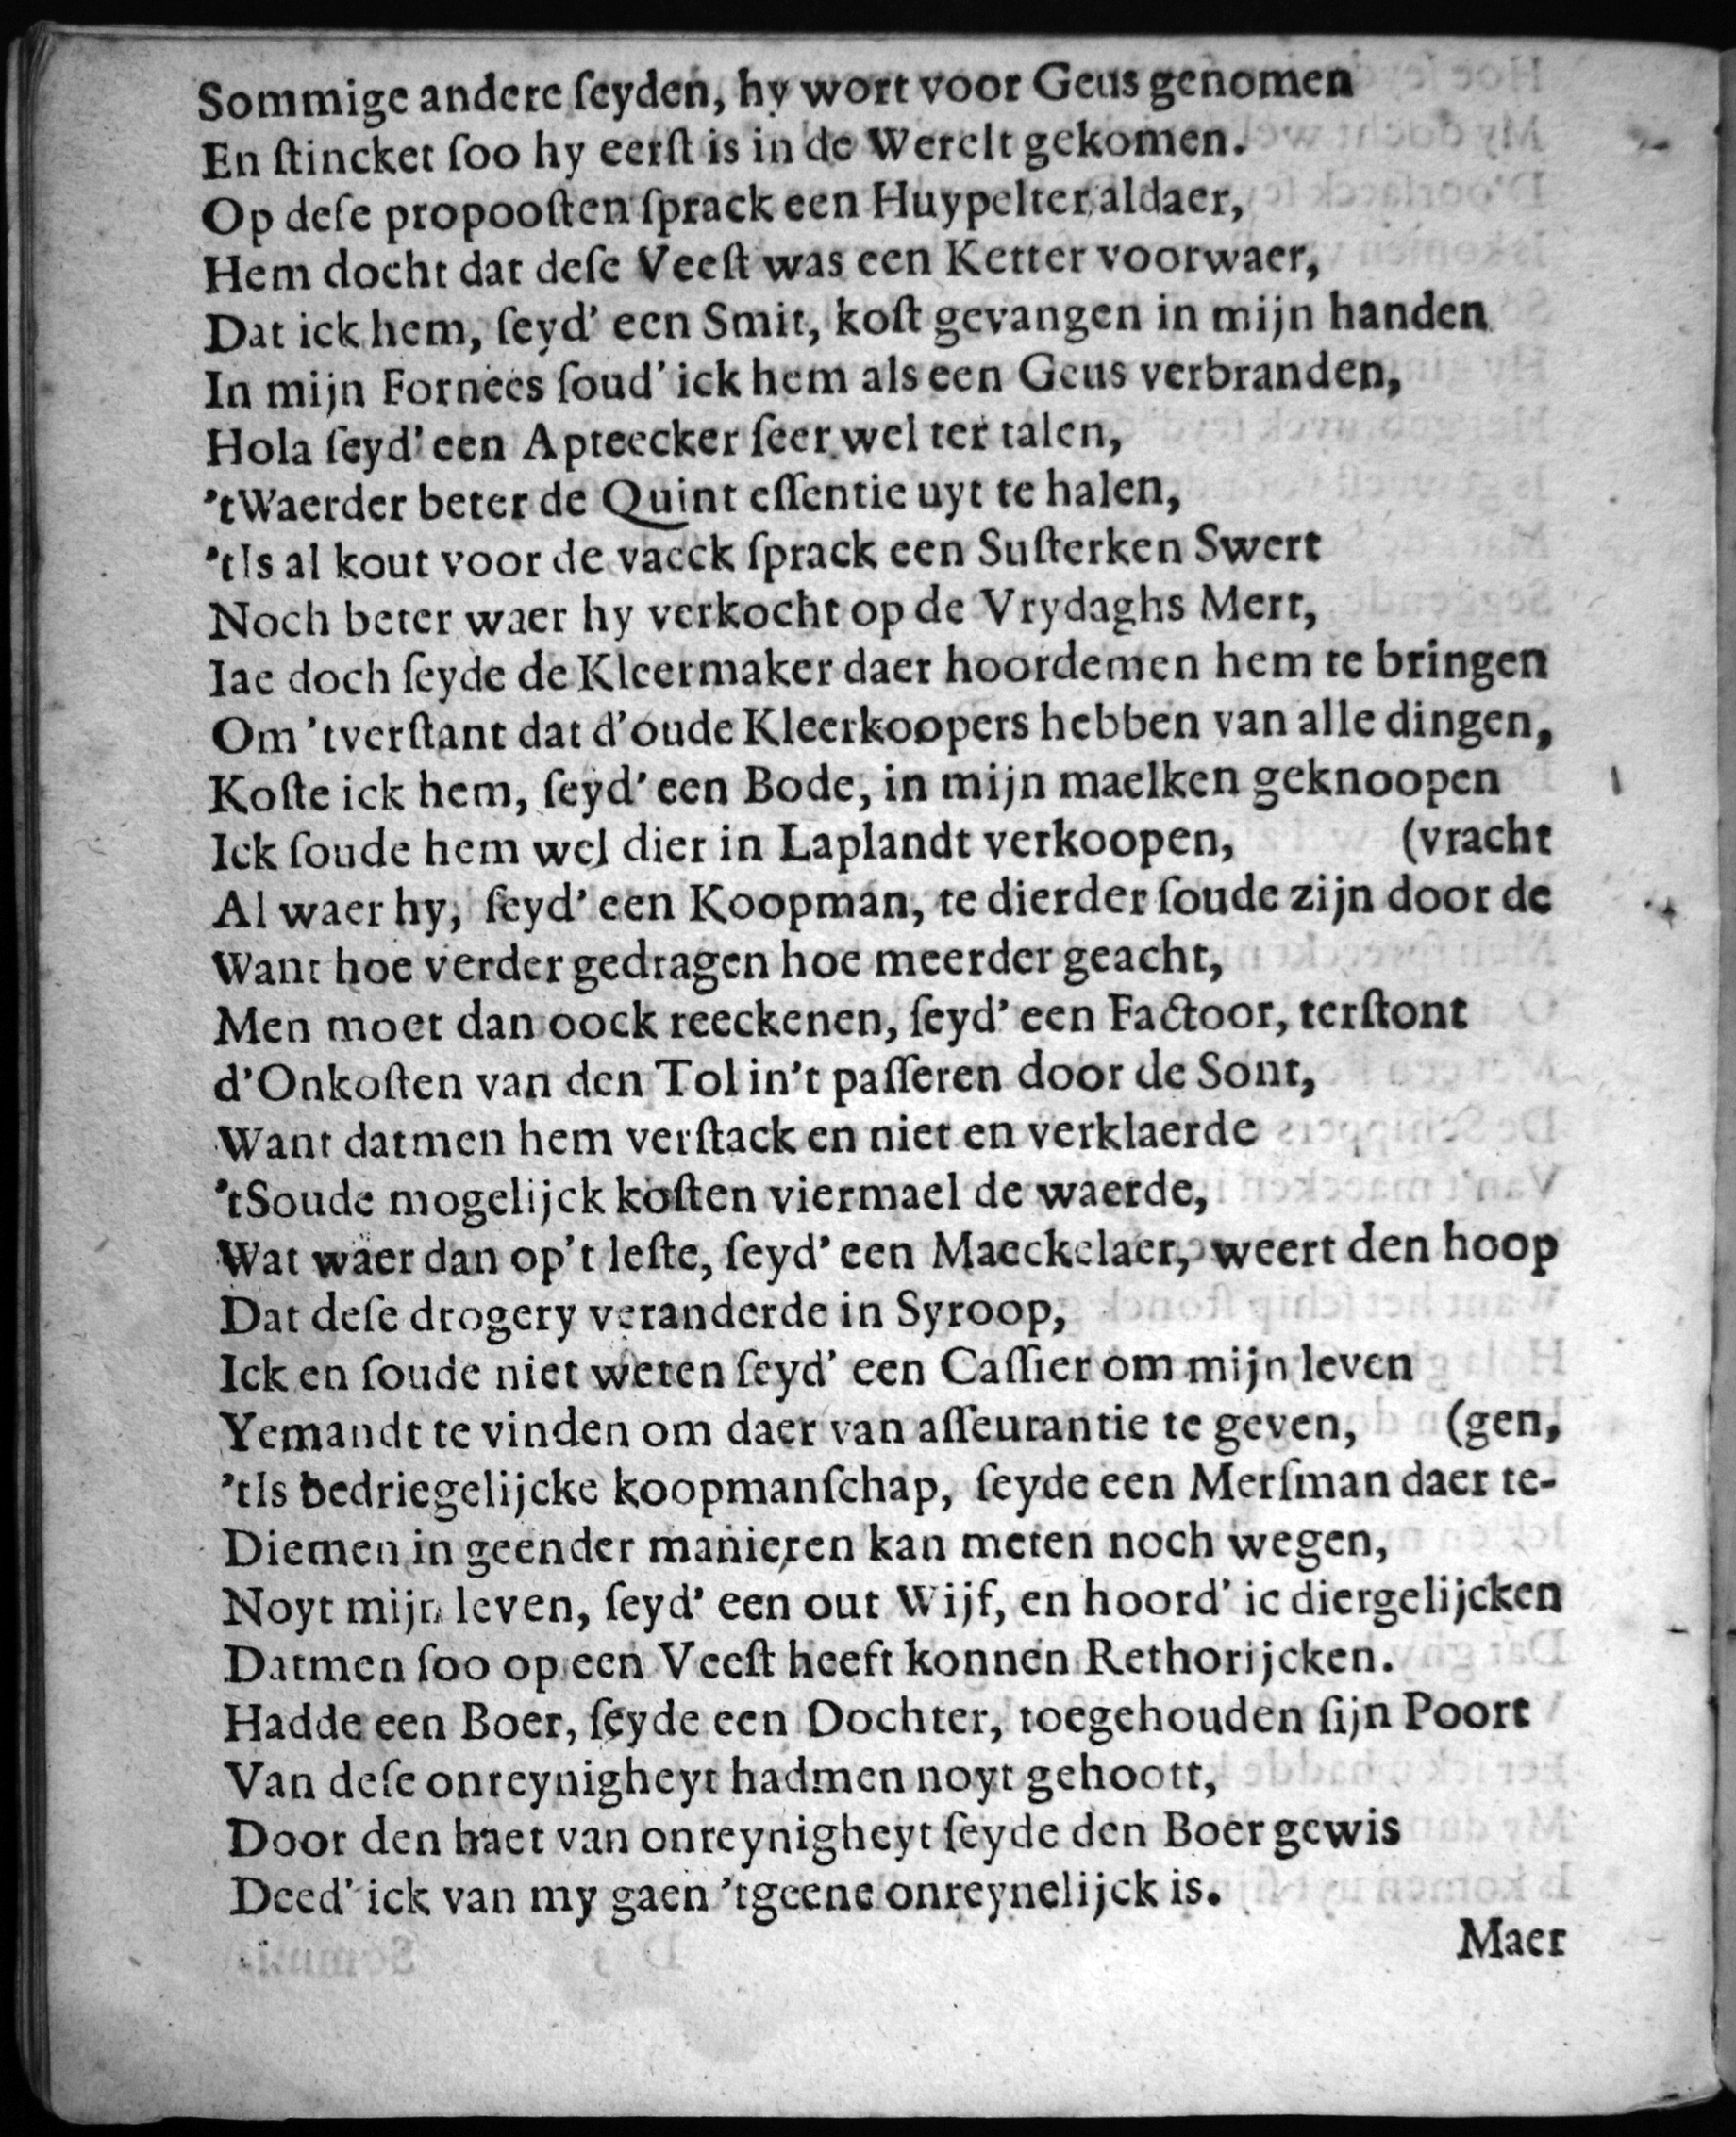 Sommige andere ſeyden, hy wort voor Geus genomen
En ſtincket ſoo hy eerſt is in de Werelt gekomen.
Op deſe propooſten ſprack een Huypelter aldaer,
Hem docht dat deſe Veeſt was een Ketter voorwaer,
Dat ick hem, ſeyd' een Smit, koſt gevangen in mijn handen
In mijn Fornees ſoud' ick hem als een Geus verbranden,
Hola ſeyd' een Apteecker ſeer wel ter talen,
'tWaerder beter de Quint eſſentie uyt te halen,
'tIs al kout voor de vaeck ſprack een Suſterken Swert
Noch beter waer hy verkocht op de Vrydaghs Mert,
Iae doch ſeyde de Kleermaker daer hoordemen hem te bringen
Om 'tverſtant dat d'oude Kleerkoopers hebben van alle dingen,
Koſte ick hem, ſeyd' een Bode, in mijn maelken geknoopen
Ick ſoude hem wel dier in Laplandt verkoopen, (vracht
Al waer hy, ſeyd' een Koopman, te dierder ſoude zijn door de
Want hoe verder gedragen hoe meerder geacht,
Men moet dan oock reeckenen, ſeyd' een Factoor, terſtont
d'Onkoſten van den Tol in't paſſeren door de Sont,
Want datmen hem verſtack en niet en verklaerde
'tSoude mogelijck koſten viermael de waerde,
Wat waer dan op't leſte, ſeyd' een Maeckelaer, weert den hoop
Dat deſe drogery veranderde in Syroop,
Ick en ſoude niet weten ſeyd' een Caſſier om mijn leven
Yemandt te vinden om daer van aſſeurantie te geven, (gen,
'tIs bedriegelijcke koopmanſchap, ſeyde een Merſman daer te-
Diemen in geender manieren kan meten noch wegen,
Noyt mijn leven, ſeyd' een out Wijf, en hoord' ic diergelijcken
Datmen ſoo op een Veeſt heeft konnen Rethorijcken.
Hadde een Boer, ſeyde een Dochter, toegehouden ſijn Poort
Van deſe onreynigheyt hadmen noyt gehoort,
Door den haet van onreynigheyt ſeyde den Boer gewis
Deed' ick van my gaen 'tgeene onreynelijck is.
Maer